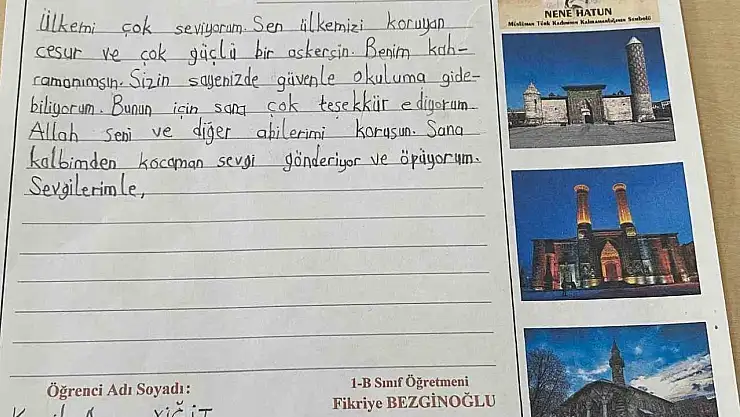 NENE HATUN
Müslüman Türk Kadınının Kahramanlığının Sembolü
Ülkemi çok seviyorum. Sen ülkemizi koruyan
cesur ve çok güçlü bir askersin. Benim kah-
ramanımsın. Sizin sayenizde güvenle okuluma gide-
biliyorum. Bunun için sana çok teşekkür ediyorum.
Allah seni ve diğer abilerimi korusun. Sana
kalbimden kocaman sevgi gönderiyor ve öpüyorum.
Sevgilerimle,
Öğrenci Adı Soyadı:
1-B Sınıf Öğretmeni
Fikriye BEZGİNOĞLU
YİĞİT